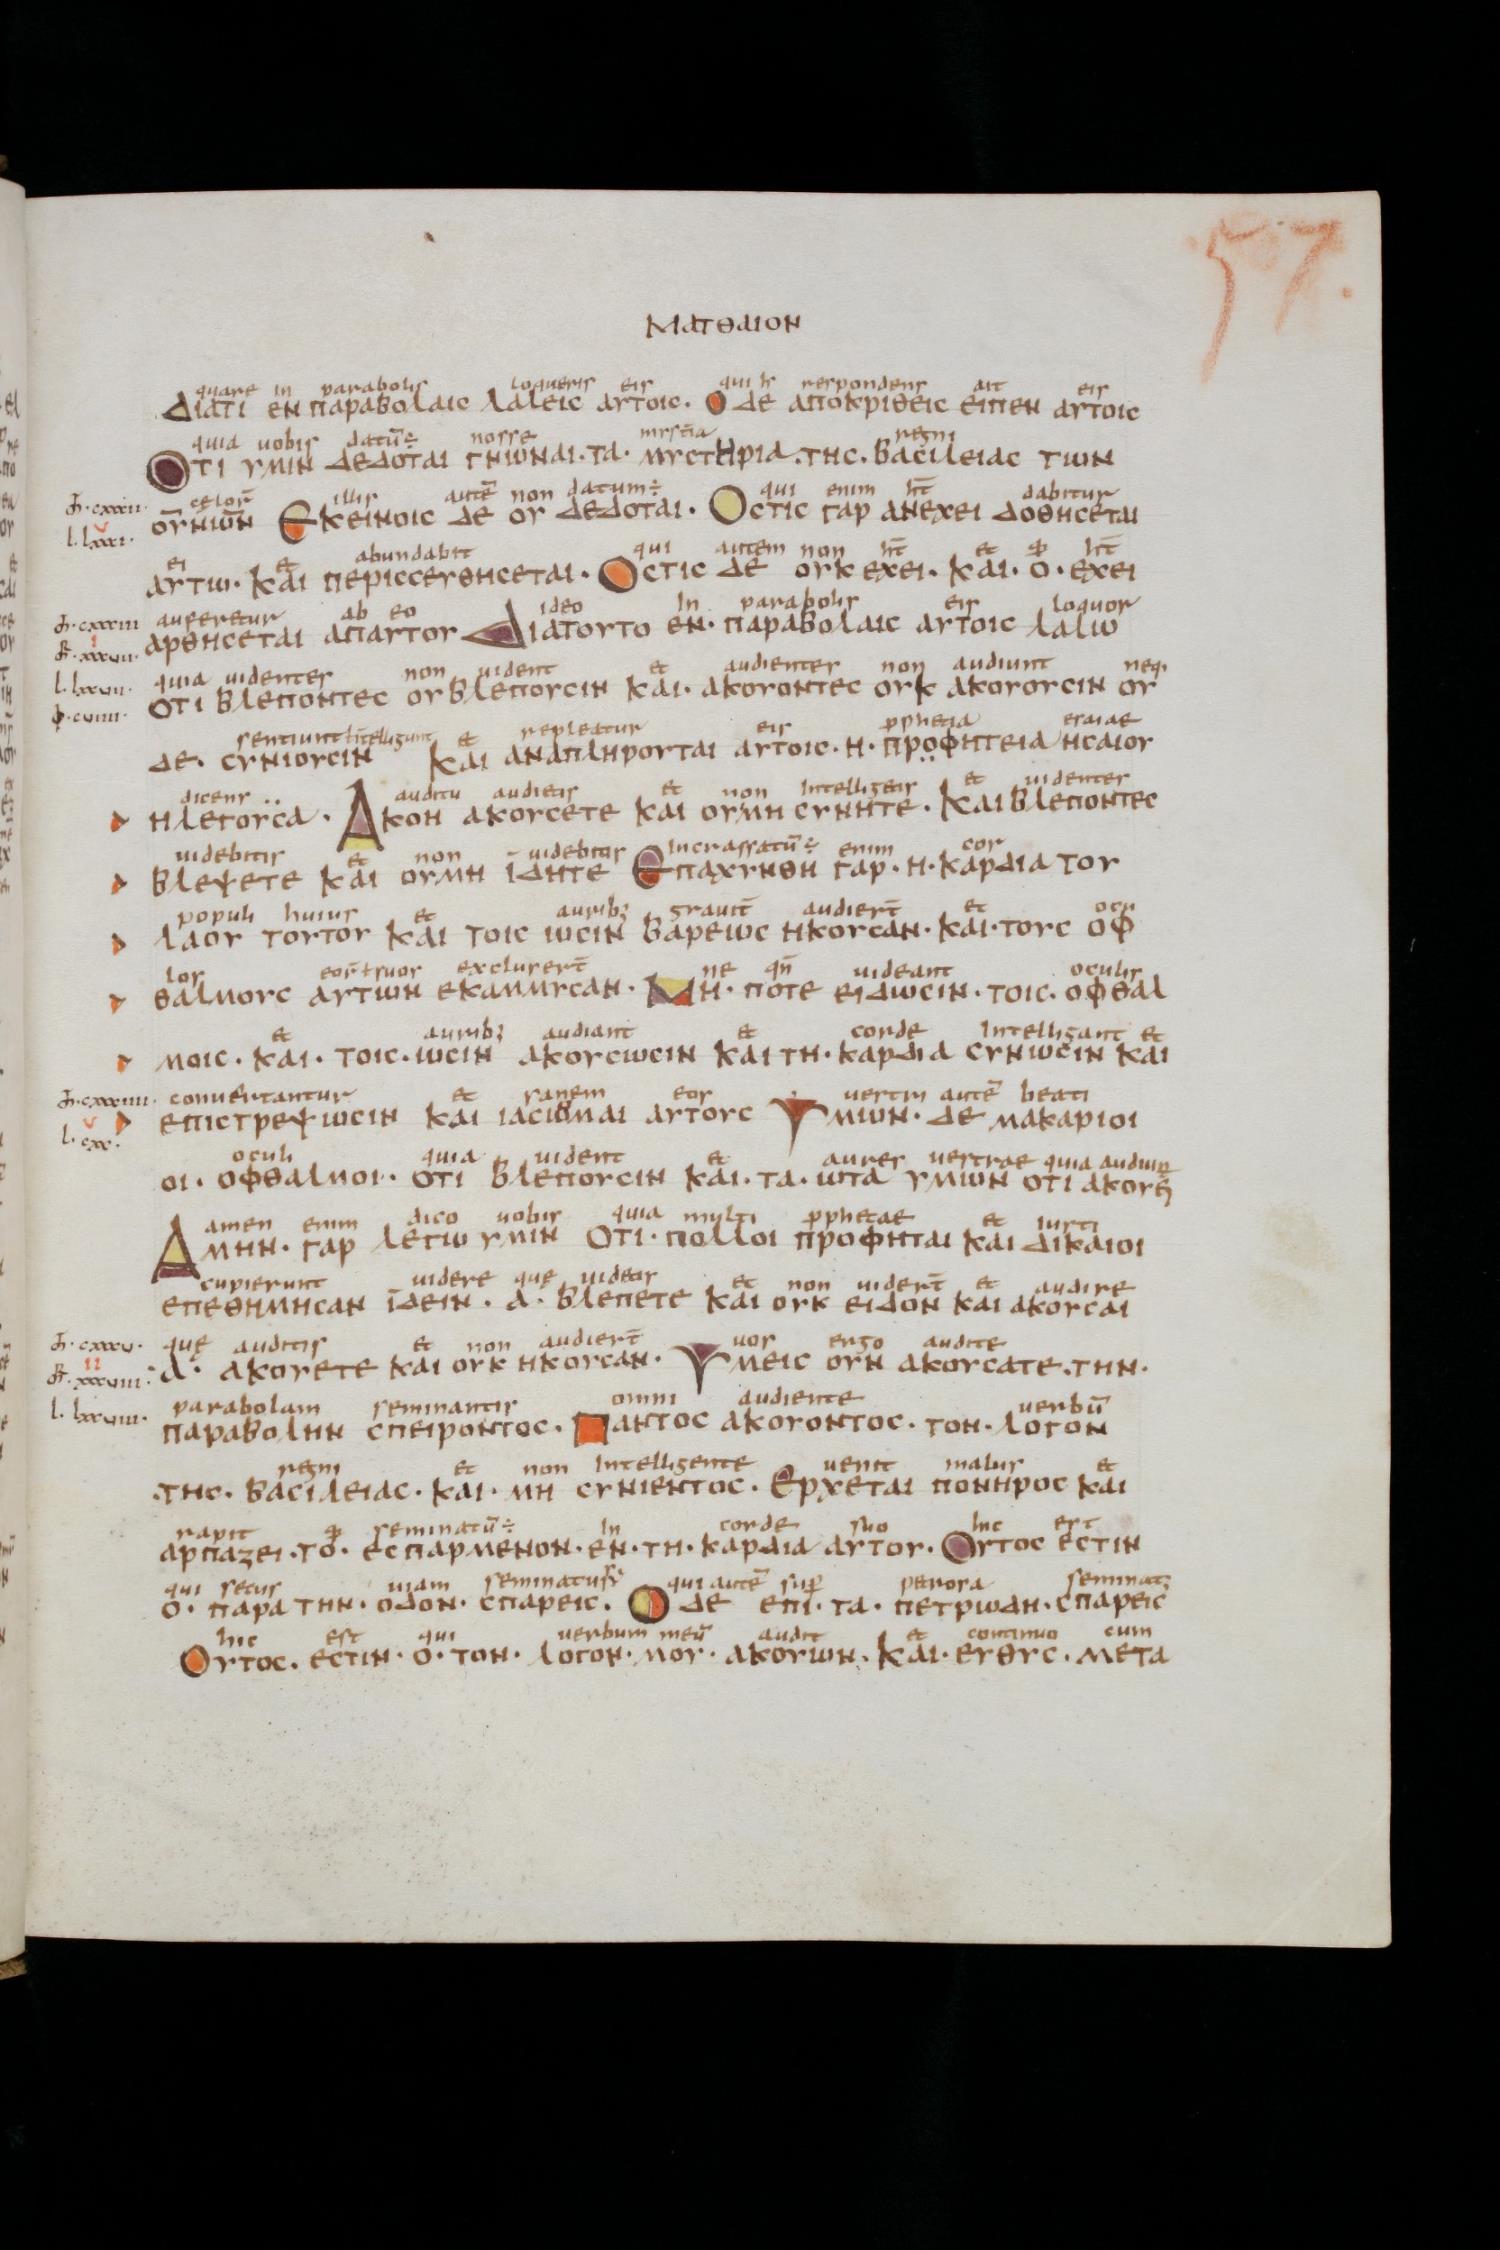 57.
ΜΑΤΘΑΙΟΝ
quare in parabolis loqueris eis qui respondens ait eis
ΔΙΑΤΙ ΕΝ ΠΑΡΑΒΟΛΑΙC ΛΑΛΕΙC ΑΥΤΟΙC · Ο ΔΕ ΑΠΟΚΡΙΘΕΙC ΕΙΠΕΝ ΑΥΤΟΙC
quia uobis datū÷ nosse regni
ΟΤΙ ΥΜΙΝ ΔΕΔΟΤΑΙ ΓΝΩΝΑΙ · ΤΑ · ΜΥCΤΗΡΙΑ · ΤΗC · ΒΑCΙΛΕΙΑC ΤΩΝ
celor̄ illis autē non datum÷ qui enim hт̄ dabitur
ΟΥΝΙΩΝ ΕΚΕΙΝΟΙC ΔΕ ΟΥ ΔΕΔΟΤΑΙ · ΟCΤΙC ΓΑΡ ΑΝΕΧΕΙ ΔΟΘΗCΕΤΑΙ
l. lxxxi.
ei et abundabit qui autem non hт̄ et hт̄
ΑΥΤΩ · ΚΑΙ ΠΕΡΙCCΕΥΘΗCΕΤΑΙ · ΟCΤΙC ΔΕ ΟΥΚ ΕΧΕΙ · ΚΑΙ · Ο · ΕΧΕΙ
auferetur ab eo ideo in parabolis eis loquor
ΑΡΘΗCΕΤΑΙ ΑΠΑΥΤΟΥ ΔΙΑΤΟΥΤΟ ΕΝ · ΠΑΡΑΒΟΛΑΙC ΑΥΤΟΙC ΛΑΛΩ
quia uidentes non uident et audientes non audiunt neq,
ΟΤΙ ΒΛΕΠΟΝΤΕC ΟΥ ΒΛΕΠΟΥCΙΝ ΚΑΙ · ΑΚΟΥΟΝΤΕC ΟΥΚ ΑΚΟΥΟΥCΙΝ ΟΥ
sentiunt ł intelligunt et repleatur eis pphetia esaiae
ΔΕ · CΥΝΙΟΥCΙΝ ΚΑΙ ΑΝΑΠΛΗΡΟΥΤΑΙ ΑΥΤΟΙC · Η · ΠΡΟΦΗΤΕΙΑ ΗCΑΙΟΥ
dicens auditu audietis et non intelligetis et uidentes
ΗΛΕΓΟΥCΑ · ΑΚΟΗ ΑΚΟΥCΕΤΕ ΚΑΙ ΟΥΜΗ CΥΝΗΤΕ · ΚΑΙ ΒΛΕΠΟΝΤΕC
uidebitis et non uidebitis incrassatū÷ enim cor
ΒΛΕΨΕΤΕ ΚΑΙ ΟΥΜΗ ΙΔΗΤΕ ΕΠΑΧΥΝΘΗ ΓΑΡ · Η · ΚΑΡΔΙΑ ΤΟΥ
populi huius et aurib; grauit̄ audier̄t et ocu
ΛΑΟΥ ΤΟΥΤΟΥ ΚΑΙ ΤΟΙC ΩCΙΝ ΒΑΡΕΩC ΗΚΟΥCΑΝ · ΚΑΙ · ΤΟΥC ΟΦ
los eor̄ł suos exclusert̄ ne qn̄ uideant oculis
ΘΑΛΜΟΥC ΑΥΤΩΝ ΕΚΑΜΜΥCΑΝ · ΜΗ · ΠΟΤΕ ΕΙΔΩCΙΝ · ΤΟΙC · ΟΦΘΑΛ
et aurib; audiant et corde intelligant et
ΜΟΙC · ΚΑΙ · ΤΟΙC · ΩCΙΝ ΑΚΟΥCΩCΙΝ ΚΑΙ ΤΗ · ΚΑΡΔΙΑ CΥΝΩCΙΝ ΚΑΙ
conuertantur et sanem eos uestri autē beati
ΕΠΙCΤΡΕΨΩCΙΝ ΚΑΙ ΙΑCΩΜΑΙ ΑΥΤΟΥC ΥΜΩΝ · ΔΕ ΜΑΚΑΡΙΟΙ
oculi quia uident et aures uestrae quia audiun
ΟΙ · ΟΦΘΑΛΜΟΙ · ΟΤΙ ΒΛΕΠΟΥCΙΝ ΚΑΙ · ΤΑ · ΩΤΑ ΥΜΩΝ ΟΤΙ
amen enim dico uobis quia multi pphetae et iusti
ΑΜΗΝ · ΓΑΡ ΛΕΓΩ ΥΜΙΝ ΟΤΙ · ΠΟΛΛΟΙ ΠΡΟΦΗΤΑΙ ΚΑΙ ΔΙΚΑΙΟΙ
cupierunt uidere quę uidetis et non uidert̄ et audire
ΕΠΕΘΗΜΗCΑΝ ΙΔΕΙΝ · Α · ΒΛΕΠΕΤΕ ΚΑΙ ΟΥΚ ΕΙΔΟΝ ΚΑΙ ΑΚΟΥCΑΙ
quę auditis et non audiert̄ uos ergo audite
Α · ΑΚΟΥΕΤΕ ΚΑΙ ΟΥΚ ΗΚΟΥCΑΝ · ΥΜΕΙC ΟΥΝ ΑΚΟΥCΑΤΕ · ΤΗΝ ·
parabolam seminantis omni audiente uerbū
ΠΑΡΑΒΟΛΗΝ CΠΕΙΡΟΝΤΟC · ΠΑΝΤΟC ΑΚΟΥΟΝΤΟC · ΤΟΝ · ΛΟΓΟΝ
regni et non intelligente uenit malus et
ΤΗC · ΒΑCΙΛΕΙΑC · ΚΑΙ · ΜΗ CΥΝΙΕΝΤΟC · ΕΡΧΕΤΑΙ ΠΟΝΗΡΟC ΚΑΙ
rapit seminatū÷ in corde suo hic est
ΑΡΠΑΖΕΙ · ΤΟ · ΕCΠΑΡΜΕΝΟΝ · ΕΝ · ΤΗ · ΚΑΡΔΙΑ ΑΥΤΟΥ · ΟΥΤΟC ΕCΤΙΝ
qui secus uiam seminatus qui autē sup petrosa seminat;
Ο · ΠΑΡΑ ΤΗΝ · ΟΔΟΝ · CΠΑΡΕΙC · Ο ΔΕ ΕΠΙ · ΤΑ · ΠΕΤΡΩΔΗ · CΠΑΡΕΙC
hic est qui uerbum meū audit et continuo cum
ΟΥΤΟC · ΕCΤΙΝ · Ο · ΤΟΝ · ΛΟΓΟΝ · ΜΟΥ · ΑΚΟΥΩΝ · ΚΑΙ · ΕΥΘΥC · ΜΕΤΑ